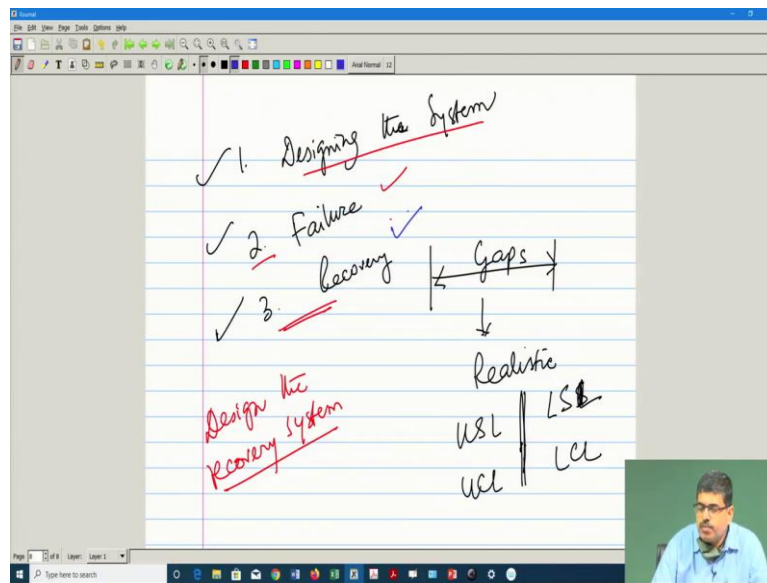 Xournal
File Edit View Page Tools Options Help
Arial Normal 12
1. Designing the System
2. Failure
3. Recovery
Gaps
Realistic
USL LSL
UCL LCL
Design the
recovery system
Page 8 of 8 Layer: Layer 1
Type here to search